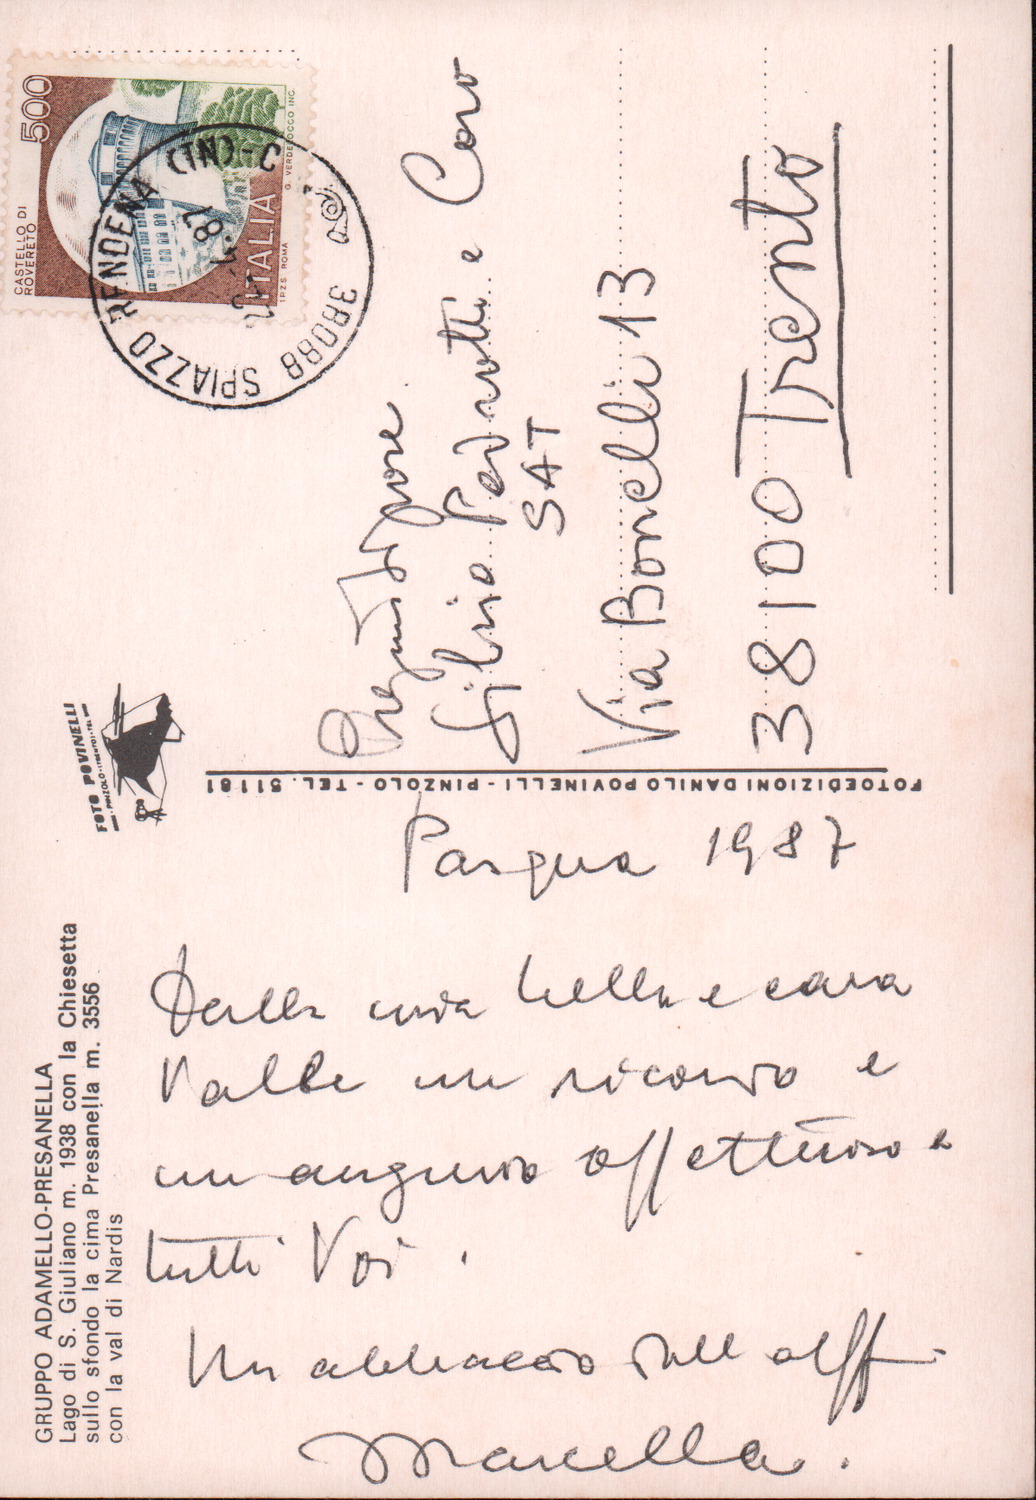 GRUPPO ADAMELLO-PRESANELLA
Lago di S. Giuliano m. 1938 con la Chiesetta
sullo sfondo la cima Presanella m. 3556
con la val di Nardis
FOTO POVINELLI
PINZOLO (TRENTO) TEL.
Pasqua 1987
Dalla mia bella e cara
Valle un ricordo e
un augurio affettuoso a
tutti Voi.
Un abbraccio dall'
Marcella.
FOTOEDIZIONI DANILO POVINELLI - PINZOLO - TEL. 51181
CASTELLO DI
ROVERETO
500
ITALIA
I.P.Z.S. ROMA
G. VERDEROCCO INC.
38088 SPIAZZO RENDENA (TN)-C
87
Silvio Pedrotti e Coro
SAT
Via Bonelli 13
38100 Trento